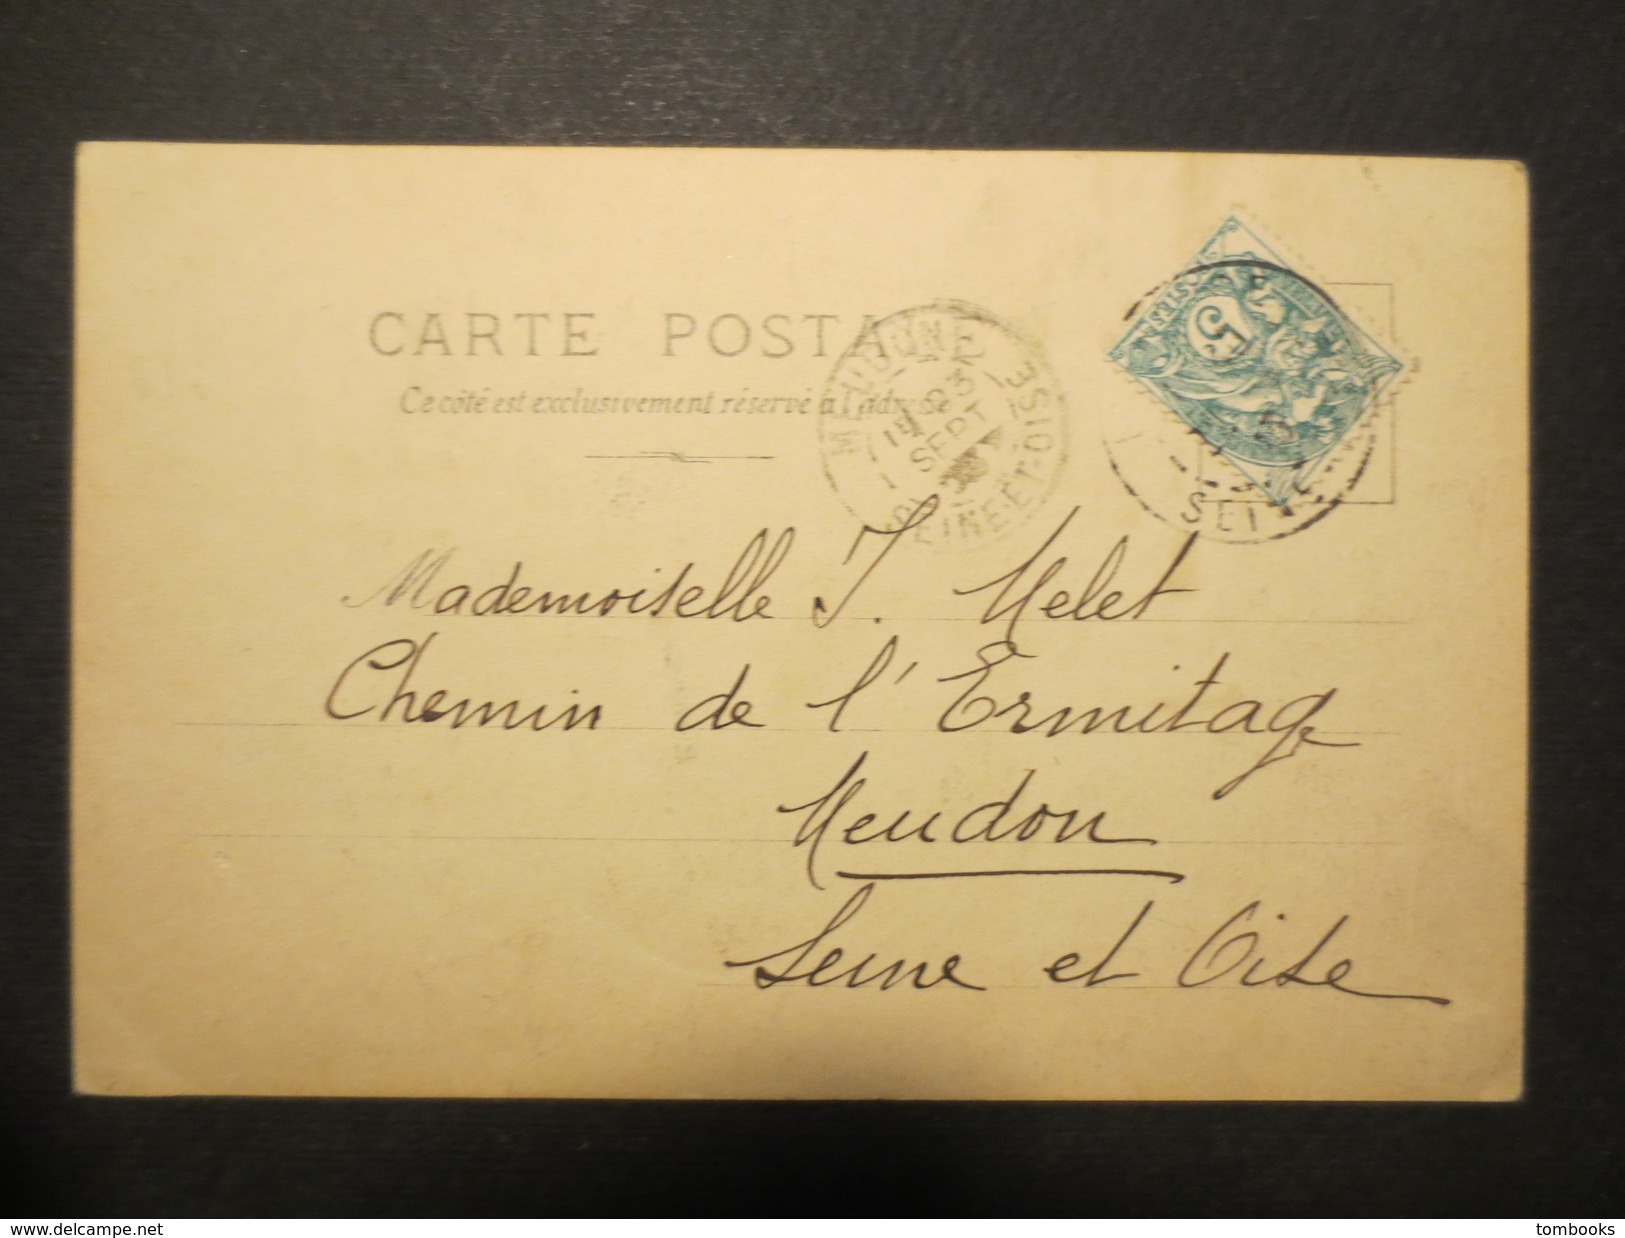 CARTE POSTA
Ce côté est exclusivement réservé à l'adresse
MEUDON
SEPT
03
SEINE-ET-OISE
5
POSTES
SEINE
Mademoiselle J. Melet
Chemin de l'Ermitage
Meudon
Seine et Oise
www.delcampe.net
tombooks